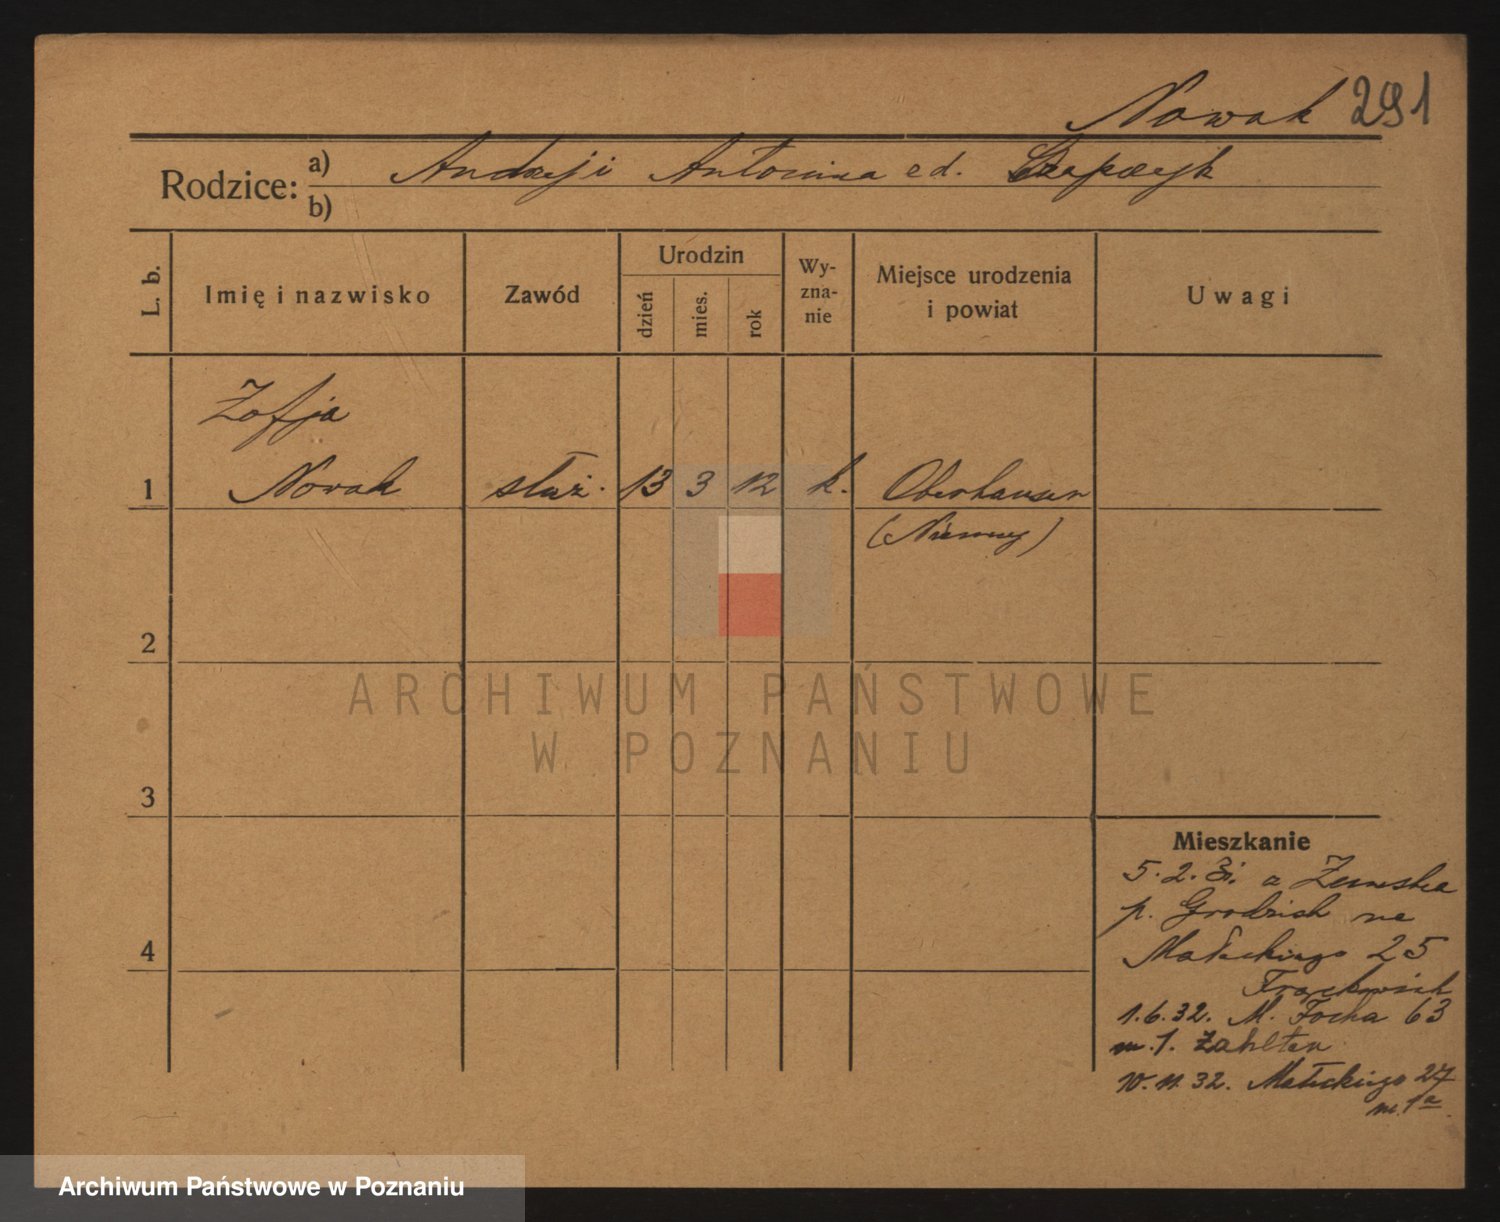 Nowak 291
Rodzice: a) Andrzej i Antonina z d.
b)
L. b. Imię i nazwisko Zawód Urodzin dzień mies. rok Wy-zna-nie Miejsce urodzenia i powiat Uwagi
Zofja
1 Nowak służ. 13 3 12 k. Oberhausen
(Niemcy)
2
ARCHIWUM PAŃSTWOWE
W POZNANIU
3
Mieszkanie
5.2.31. z
p. Grodzisk na
4 Małeckiego 25
1.6.32. M. Focha 63
m.1.
10.11.32. Małeckiego 27
m. 1a
Archiwum Państwowe w Poznaniu